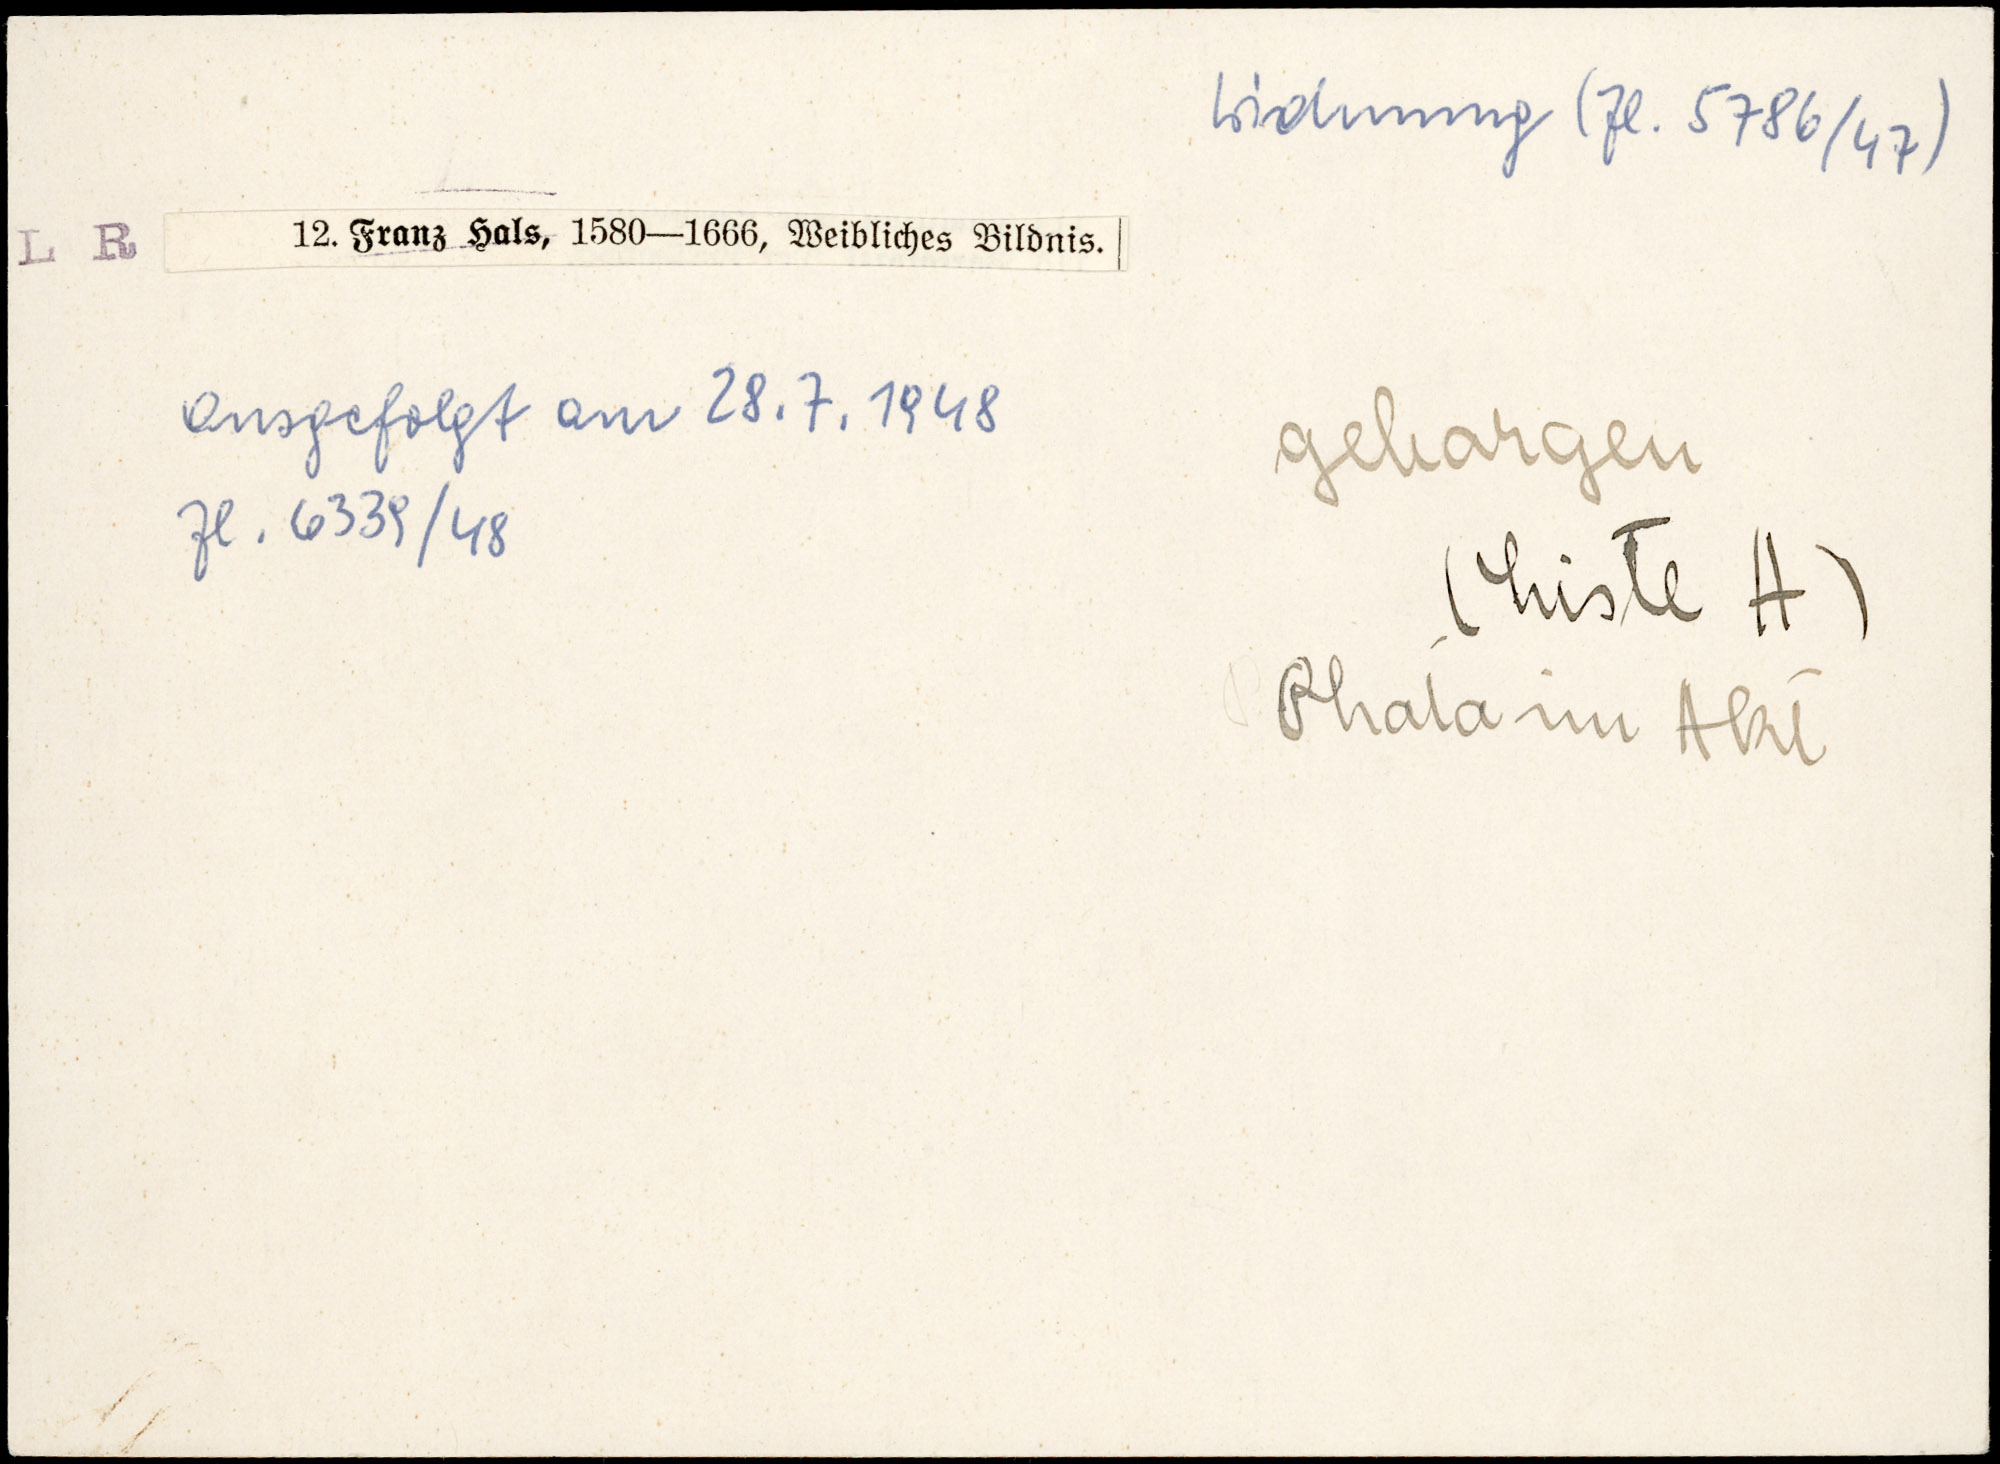 Widmung (Zl. 5786/47)
L R 12. Franz Hals, 1580—1666, Weibliches Bildnis.
ausgefolgt am 28.7.1948
Zl. 6339/48
geborgen
(Liste A)
Photo im Akt